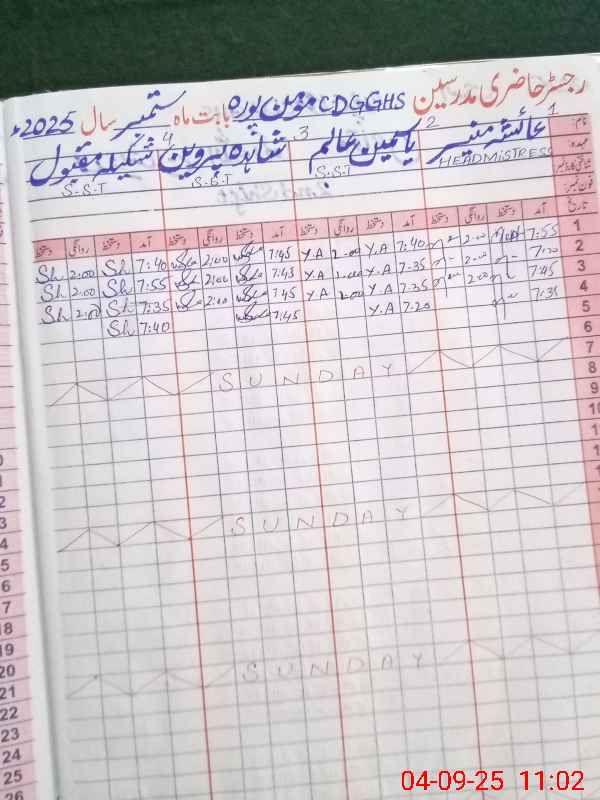 رجسٹر حاضری مدرسین CDGGHS مومن پورہ بابت ماہ ستمبر سال 2025ء
نام: 1 عائشہ منیر 2 یاسمین عالم 3 شاہدہ پروین 4 شکیلہ مقبول
عہدہ: HEADMISTRESS S.S.T S.S.T S.S.T
شناختی کارڈ نمبر
فون نمبر:
تاریخ آمد دستخط روانگی دستخط آمد دستخط روانگی دستخط آمد دستخط روانگی دستخط آمد دستخط روانگی دستخط
1 7:55 2:00 7:40 Y.A 2:00 Y.A 7:45 2:00 7:40 Sh 2:00 Sh
2 7:35 Y.A Y.A 7:43 2:00 7:55 Sh 2:00 Sh
3 7:45 2:00 7:35 Y.A 2:00 Y.A 7:45 2:00 7:35 Sh 2:00 Sh
4 7:35 7:20 Y.A 7:45 7:40 Sh
5
6
7 SUNDAY
8
9
10
11
12
13
SUNDAY
SUNDAY
2
3
4
5
6
7
18
19
20
21
22
23
24
25
26
04-09-25 11:02